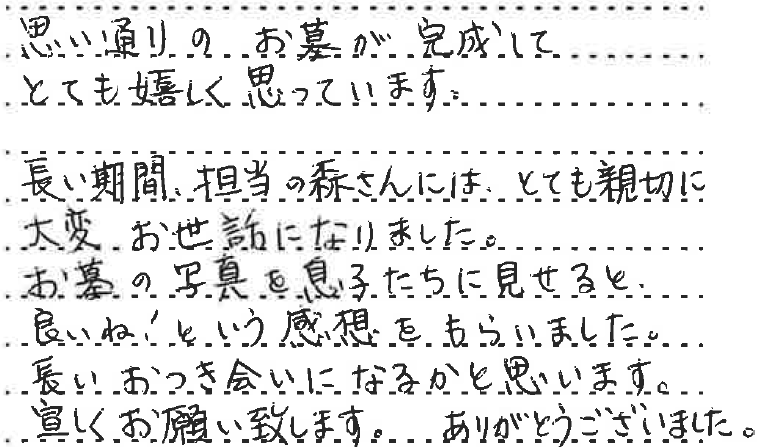 思い通りの お墓が 完成して
とても嬉しく思っています。
長い期間、担当の森さんには、とても親切に
大変 お世話になりました。
お墓の写真を息子たちに見せると、
良いね！という感想をもらいました。
長いおつき会いになるかと思います。
宜しくお願い致します。 ありがとうございました。